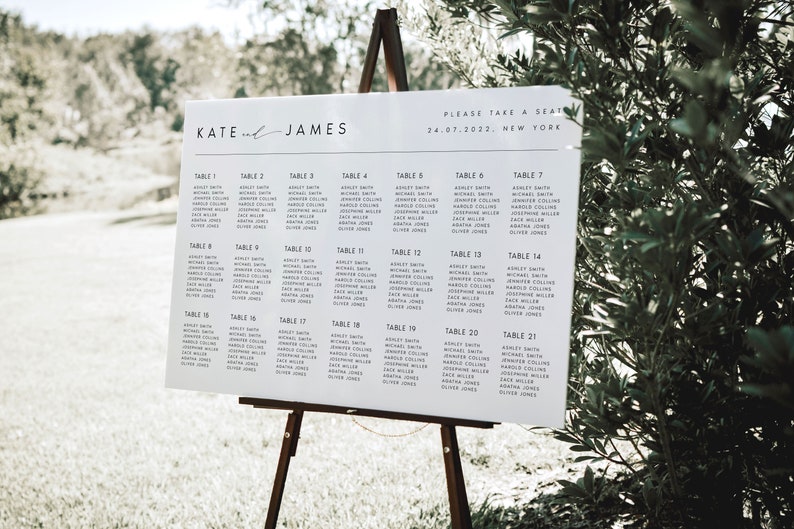 KATE and JAMES
PLEASE TAKE A SEAT
24.07.2022, NEW YORK
TABLE 1
ASHLEY SMITH
MICHAEL SMITH
JENNIFER COLLINS
HAROLD COLLINS
JOSEPHINE MILLER
ZACK MILLER
AGATHA JONES
OLIVER JONES
TABLE 2
ASHLEY SMITH
MICHAEL SMITH
JENNIFER COLLINS
HAROLD COLLINS
JOSEPHINE MILLER
ZACK MILLER
AGATHA JONES
OLIVER JONES
TABLE 3
ASHLEY SMITH
MICHAEL SMITH
JENNIFER COLLINS
HAROLD COLLINS
JOSEPHINE MILLER
ZACK MILLER
AGATHA JONES
OLIVER JONES
TABLE 4
ASHLEY SMITH
MICHAEL SMITH
JENNIFER COLLINS
HAROLD COLLINS
JOSEPHINE MILLER
ZACK MILLER
AGATHA JONES
OLIVER JONES
TABLE 5
ASHLEY SMITH
MICHAEL SMITH
JENNIFER COLLINS
HAROLD COLLINS
JOSEPHINE MILLER
ZACK MILLER
AGATHA JONES
OLIVER JONES
TABLE 6
ASHLEY SMITH
MICHAEL SMITH
JENNIFER COLLINS
HAROLD COLLINS
JOSEPHINE MILLER
ZACK MILLER
AGATHA JONES
OLIVER JONES
TABLE 7
ASHLEY SMITH
MICHAEL SMITH
JENNIFER COLLINS
HAROLD COLLINS
JOSEPHINE MILLER
ZACK MILLER
AGATHA JONES
OLIVER JONES
TABLE 8
ASHLEY SMITH
MICHAEL SMITH
JENNIFER COLLINS
HAROLD COLLINS
JOSEPHINE MILLER
ZACK MILLER
AGATHA JONES
OLIVER JONES
TABLE 9
ASHLEY SMITH
MICHAEL SMITH
JENNIFER COLLINS
HAROLD COLLINS
JOSEPHINE MILLER
ZACK MILLER
AGATHA JONES
OLIVER JONES
TABLE 10
ASHLEY SMITH
MICHAEL SMITH
JENNIFER COLLINS
HAROLD COLLINS
JOSEPHINE MILLER
ZACK MILLER
AGATHA JONES
OLIVER JONES
TABLE 11
ASHLEY SMITH
MICHAEL SMITH
JENNIFER COLLINS
HAROLD COLLINS
JOSEPHINE MILLER
ZACK MILLER
AGATHA JONES
OLIVER JONES
TABLE 12
ASHLEY SMITH
MICHAEL SMITH
JENNIFER COLLINS
HAROLD COLLINS
JOSEPHINE MILLER
ZACK MILLER
AGATHA JONES
OLIVER JONES
TABLE 13
ASHLEY SMITH
MICHAEL SMITH
JENNIFER COLLINS
HAROLD COLLINS
JOSEPHINE MILLER
ZACK MILLER
AGATHA JONES
OLIVER JONES
TABLE 14
ASHLEY SMITH
MICHAEL SMITH
JENNIFER COLLINS
HAROLD COLLINS
JOSEPHINE MILLER
ZACK MILLER
AGATHA JONES
OLIVER JONES
TABLE 15
ASHLEY SMITH
MICHAEL SMITH
JENNIFER COLLINS
HAROLD COLLINS
JOSEPHINE MILLER
ZACK MILLER
AGATHA JONES
OLIVER JONES
TABLE 16
ASHLEY SMITH
MICHAEL SMITH
JENNIFER COLLINS
HAROLD COLLINS
JOSEPHINE MILLER
ZACK MILLER
AGATHA JONES
OLIVER JONES
TABLE 17
ASHLEY SMITH
MICHAEL SMITH
JENNIFER COLLINS
HAROLD COLLINS
JOSEPHINE MILLER
ZACK MILLER
AGATHA JONES
OLIVER JONES
TABLE 18
ASHLEY SMITH
MICHAEL SMITH
JENNIFER COLLINS
HAROLD COLLINS
JOSEPHINE MILLER
ZACK MILLER
AGATHA JONES
OLIVER JONES
TABLE 19
ASHLEY SMITH
MICHAEL SMITH
JENNIFER COLLINS
HAROLD COLLINS
JOSEPHINE MILLER
ZACK MILLER
AGATHA JONES
OLIVER JONES
TABLE 20
ASHLEY SMITH
MICHAEL SMITH
JENNIFER COLLINS
HAROLD COLLINS
JOSEPHINE MILLER
ZACK MILLER
AGATHA JONES
OLIVER JONES
TABLE 21
ASHLEY SMITH
MICHAEL SMITH
JENNIFER COLLINS
HAROLD COLLINS
JOSEPHINE MILLER
ZACK MILLER
AGATHA JONES
OLIVER JONES